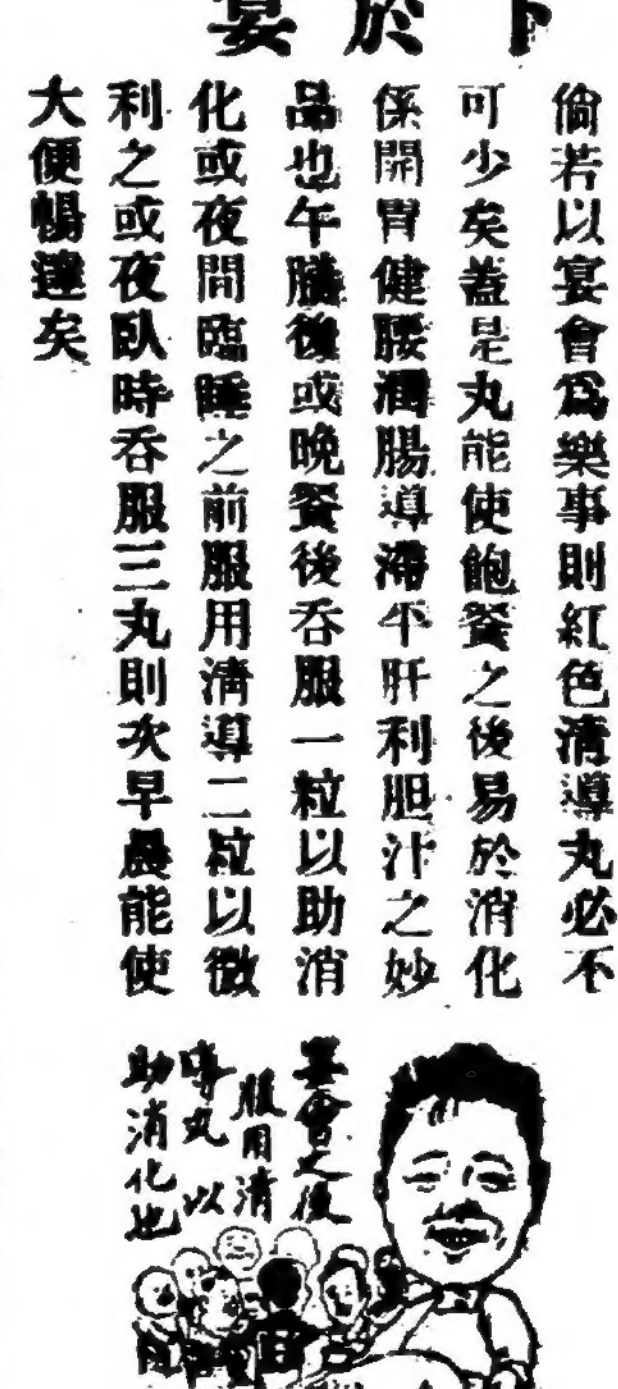 下於宴
倘若以宴會爲樂事則紅色清導丸必不
可少矣蓋是丸能使飽餐之後易於消化
係開胃健腰潤腸導滯平肝利胆汁之妙
品也午膳後或晚餐後吞服一粒以助消
化或夜間臨睡之前服用清導二粒以微
利之或夜臥時吞服三丸則次早晨能使
大便暢達矣
宴會之後
服用清
導丸以
助消化也